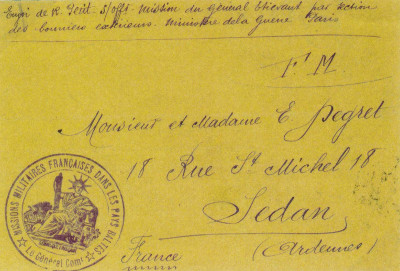 Envoi de Mr Petit S/offr Mission du Général Etievant par section
des courriers extérieurs. Ministère de la Guerre Paris
F. M
Monsieur et Madame E. Pegret
18 Rue St Michel 18
Sedan
(Ardennes)
France
MISSIONS MILITAIRES FRANÇAISES DANS LES PAYS BALTES
Le Général Comt